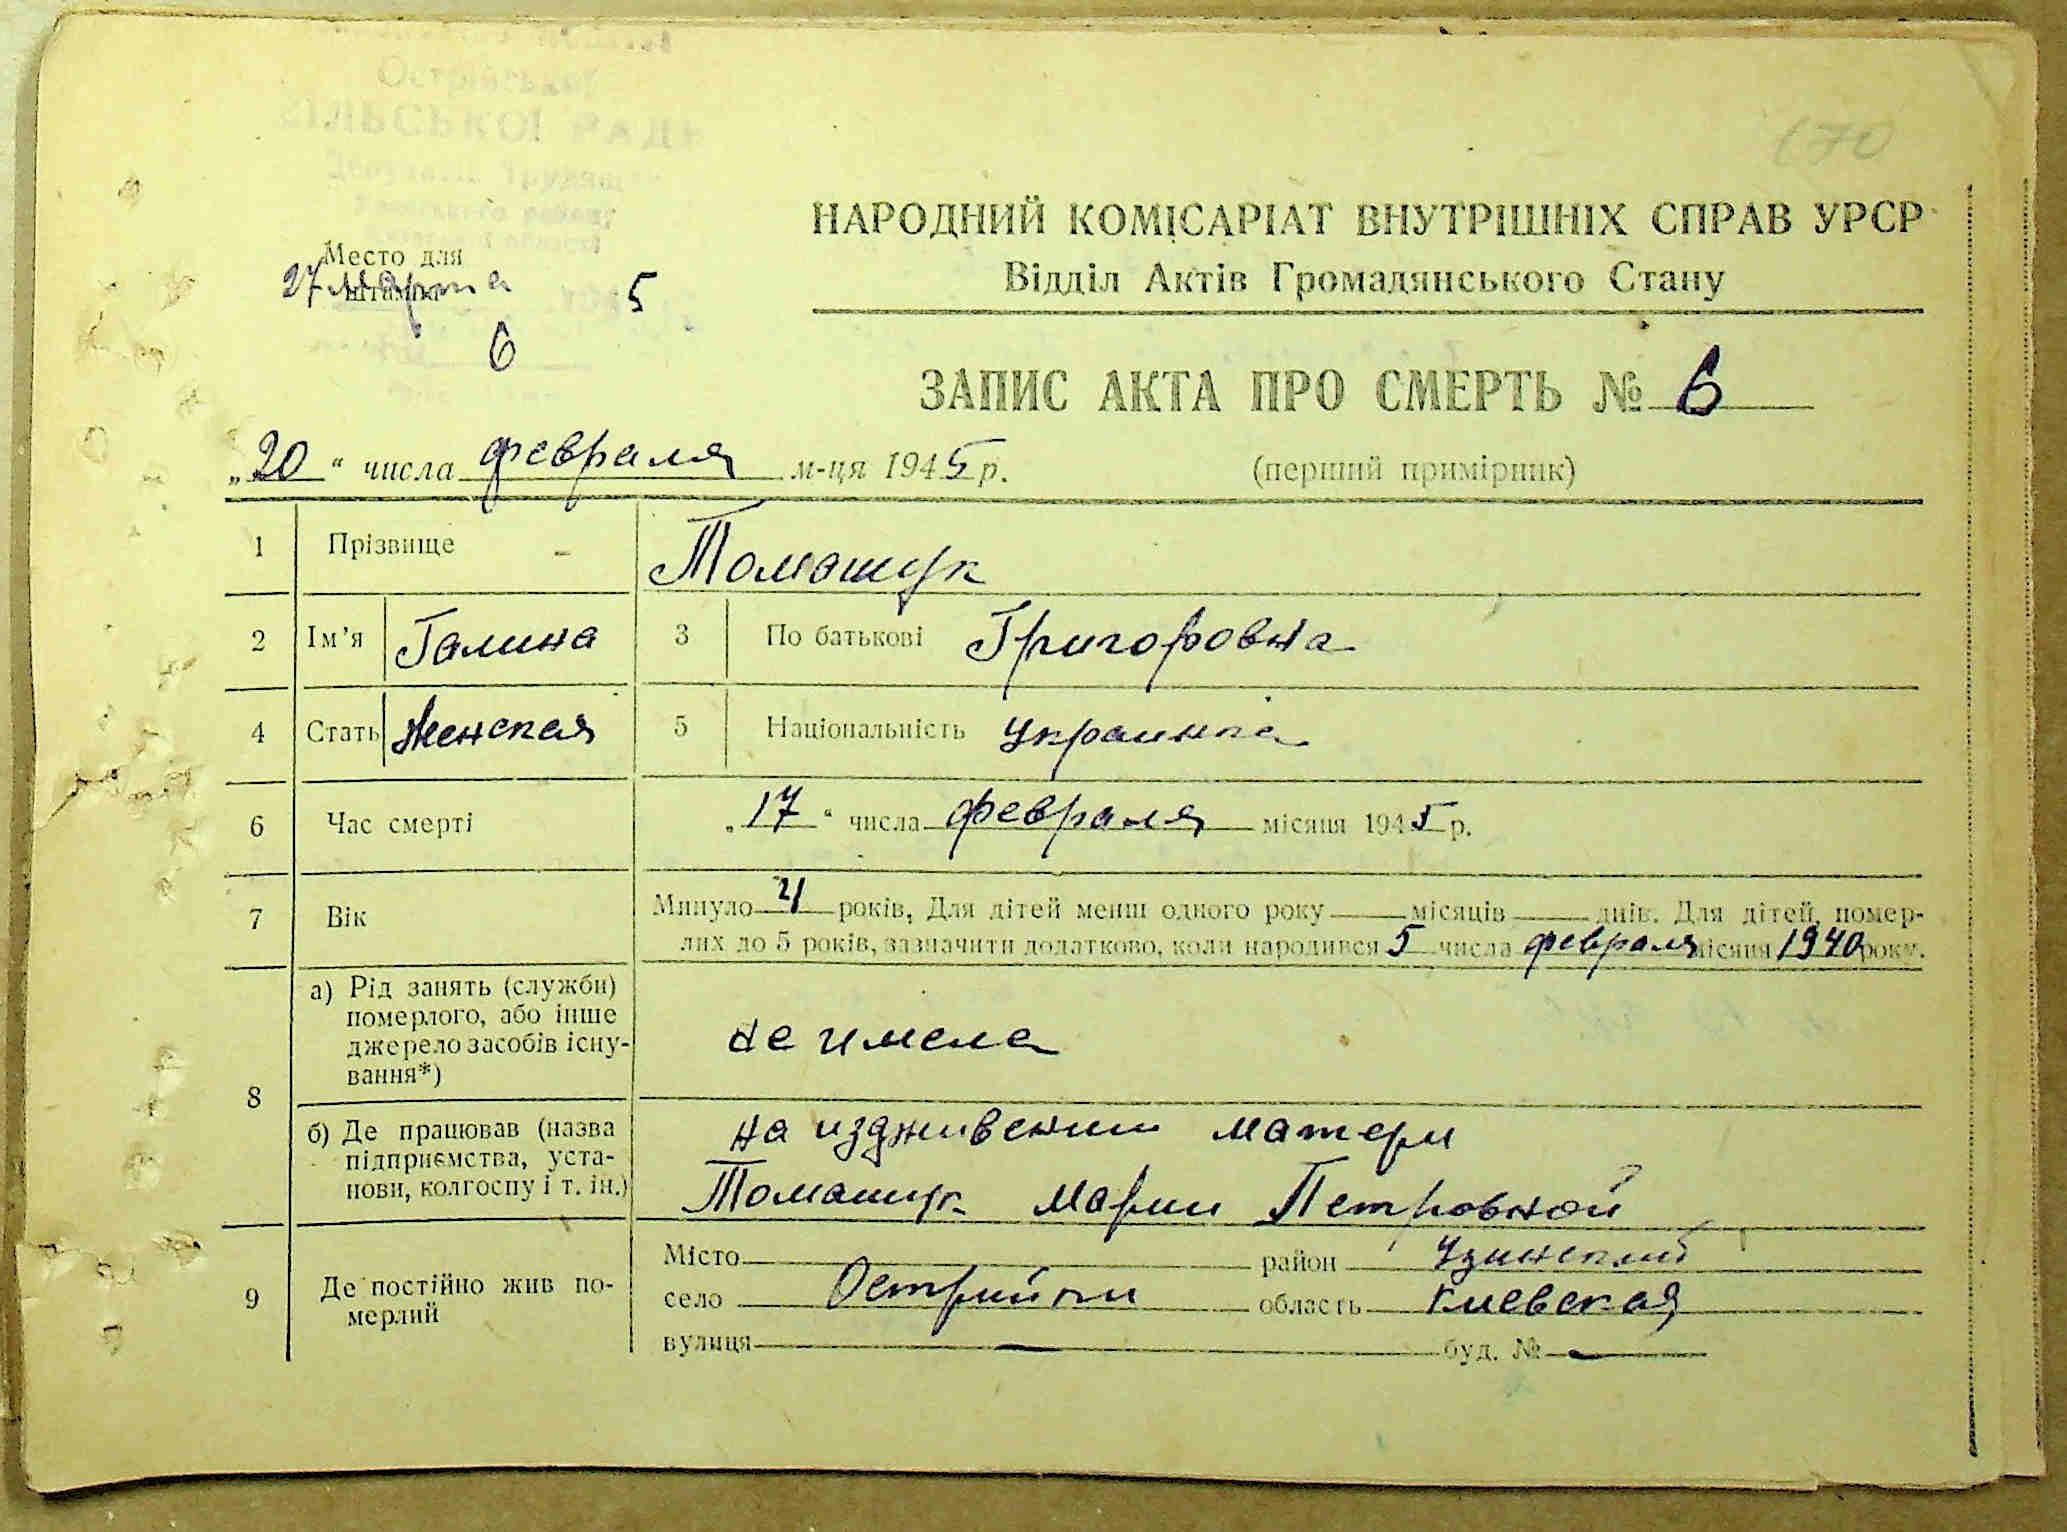 170
Острійської
СІЛЬСЬКОЇ РАДИ
Депутатів Трудящих
НАРОДНИЙ КОМІСАРІАТ ВНУТРІШНІХ СПРАВ УРСР
Відділ Актів Громадянського Стану
Место для
штампа
27 марта 5
6
ЗАПИС АКТА ПРО СМЕРТЬ № 6
„20“ числа февраля м-ця 1945 р.
(перший примірник)
1 Прізвище Томашук
2 Ім’я Галина 3 По батькові Григоровна
4 Стать Женская 5 Національність украинка
6 Час смерті „17“ числа февраля місяця 1945 р.
7 Вік Минуло 4 років. Для дітей менш одного року місяців днів. Для дітей, помер-
лих до 5 років, зазначити додатково, коли народився 5 числа февраля місяця 1940 року.
8 а) Рід занять (служби)
померлого, або інше
джерело засобів існу-
вання*)
не имела
б) Де працював (назва
підприємства, уста-
нови, колгоспу і т. ін.)
на издживении матери
Томашук Марии Петровной
9 Де постійно жив по-
мерлий
Місто район Узинский
село Острийки область Киевская
вулиця — буд. № —